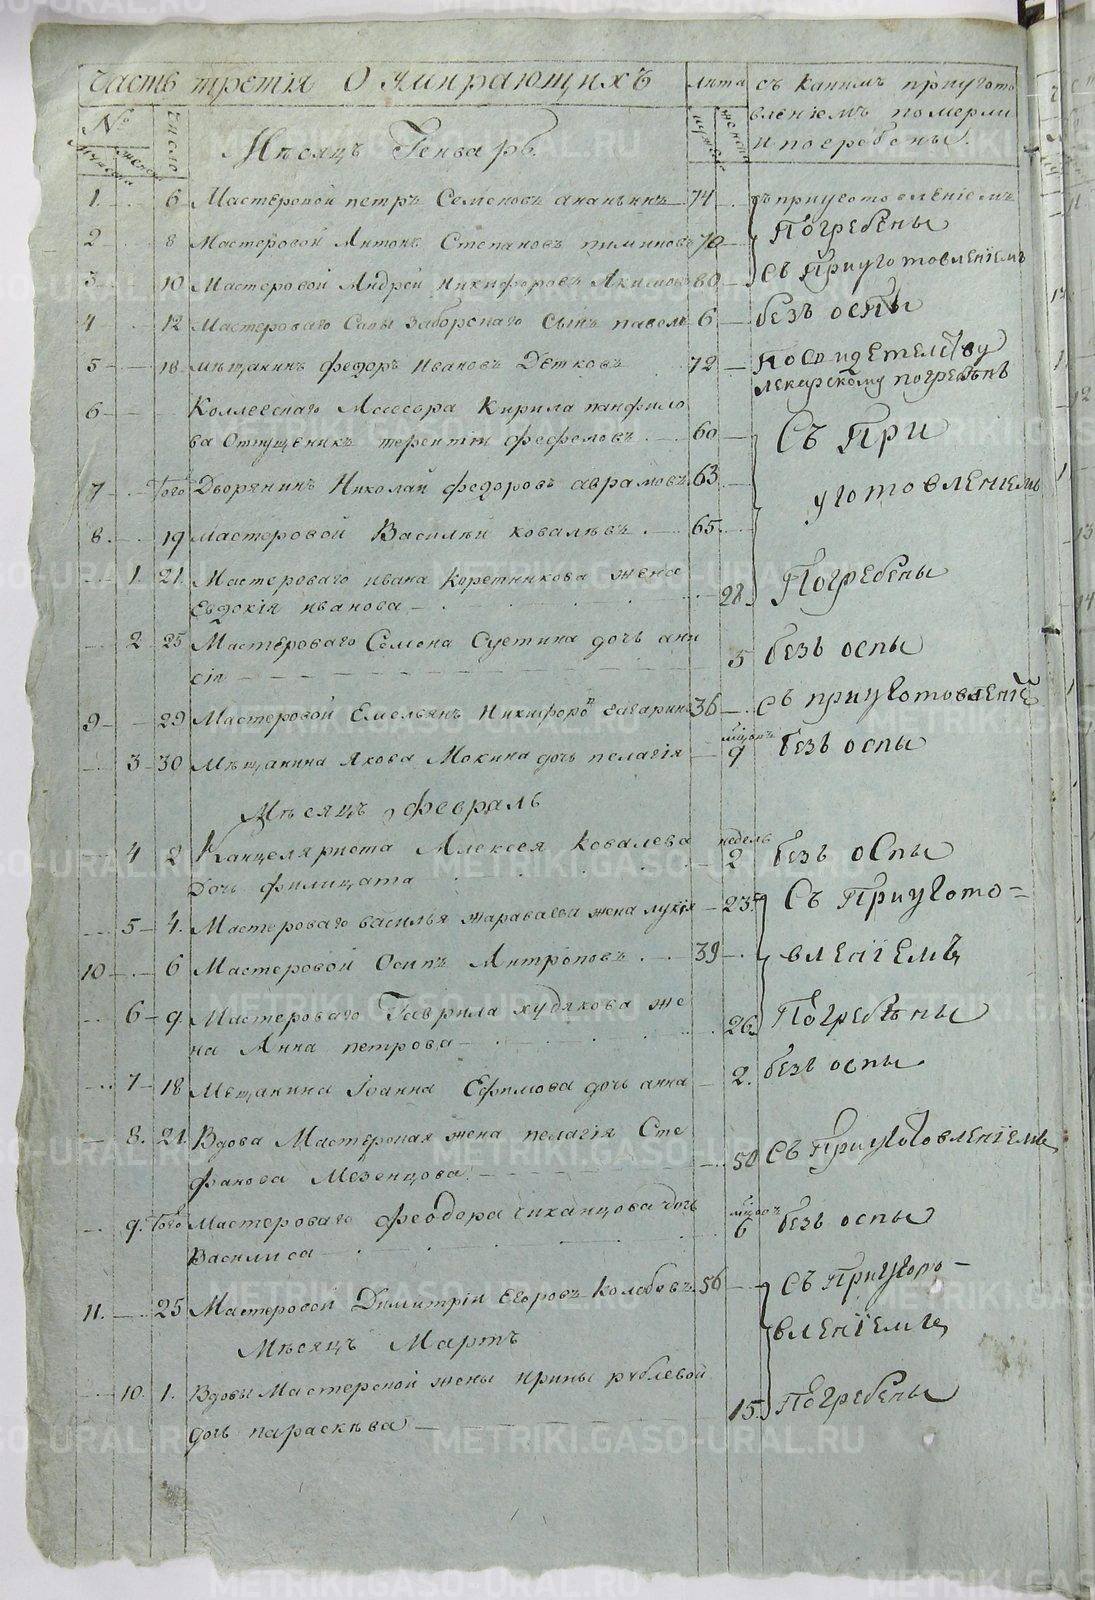 Часть третія О умирающихъ лѣта съ какимъ пріугото
№ число мужеска женска вленіемъ померли
Мѣсяцъ Генварь. и погребены.
1. 6 Мастеровой петръ Семеновъ ананьинъ 74 съ пріуготовленіемъ
2 8 Мастеровой Антонъ Степановъ пиминовъ 70 Погребены
3 10 Мастеровой Андрей Никифоровъ Акимовъ 80 Съ Пріуготовленіемъ
4 12 Мастероваго Савы Заборскаго Сынъ павелъ 6 безъ оспы
5 18 мѣщанинъ федоръ Ивановъ Дѣтковъ 72 По свидетелству
лекарскому погребенъ
6 Коллежскаго Асессора Кирила панфило
ва Отпущеникъ терентіи фефеловъ 60 Съ При
7 Того Дворянинъ Николай федоровъ аврамовъ 63 уготовленіемъ
8. 19 мастеровой Василѣи ковалѣвъ 65.
1. 21. Мастероваго ивана Коретникова жена
Евдокія иванова 28. Погребены
2 25 Мастероваго Семена Суетина дочь ани
сія 5 безъ оспы
9 29 Мастеровой Емельянъ Никифоровъ гагаринъ 36 Съ пріуготовленіе
3 30 Мѣщанина Якова Мокина дочь пелагія 9 безъ оспы
Мѣсяцъ февраль
4 2 Канцеляриста Алексея Ковалева недель
дочь филицата 2 безъ оспы
5 4. Мастероваго василья жараваева жена лукія 23. Съ Пріугото=
10 6 Мастеровой Осипъ Антроповъ 39 вленіемъ
6 9. Мастероваго Гаврила худякова же
на Анна петрова 26. Погребены
7 18 Мещанина Іоанна Ефимова дочь анна 2. безъ оспы
8. 21. Вдова Мастерская жена пелагія Сте
фанова Мезенцова 50 Съ Пріуготовленіемъ
9. Того Мастероваго феодора чиканцова дочь
Василиса 6 безъ оспы
11. 25 Мастеровой Димитріи Егоровъ Колобовъ 56 Съ Пріугото-
вленіемъ
Мѣсяцъ Мартъ
10. 1. Вдовы Мастерской жены Ирины рублевой
дочь параскѣва 15. Погребены
METRIKI.GASO-URAL.RU